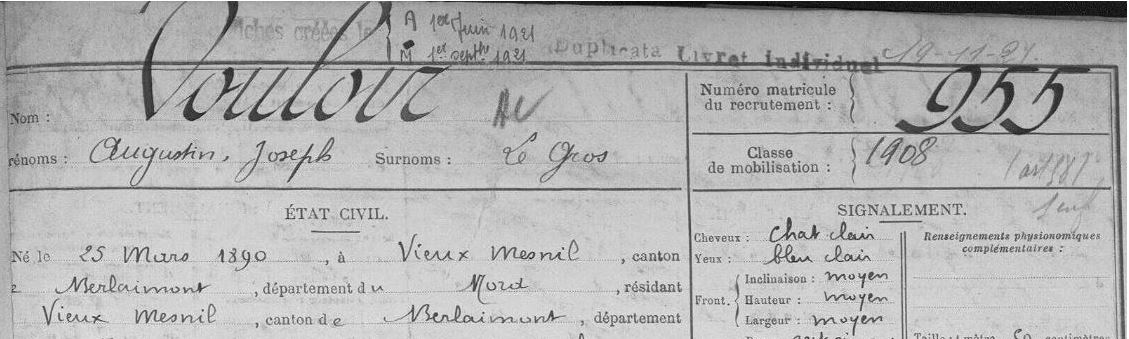 Fiches créées le { A 1er Juin 1921
M 1er septbre 1921
Duplicata Livret individuel 19-11-27
Nom : Vouloir AV
Numéro matricule du recrutement : 955
rénoms : Augustin, Joseph Surnoms : Le Gros
Classe de mobilisation : 1908
ÉTAT CIVIL.
Né le 25 Mars 1890, à Vieux Mesnil, canton
Berlaimont, département du Nord, résidant
Vieux Mesnil, canton de Berlaimont, département
SIGNALEMENT.
Cheveux : chat clair
Yeux : bleu clair
Front. { Inclinaison : moyen
Hauteur : moyen
Largeur : moyen
Renseignements physionomiques
complémentaires :